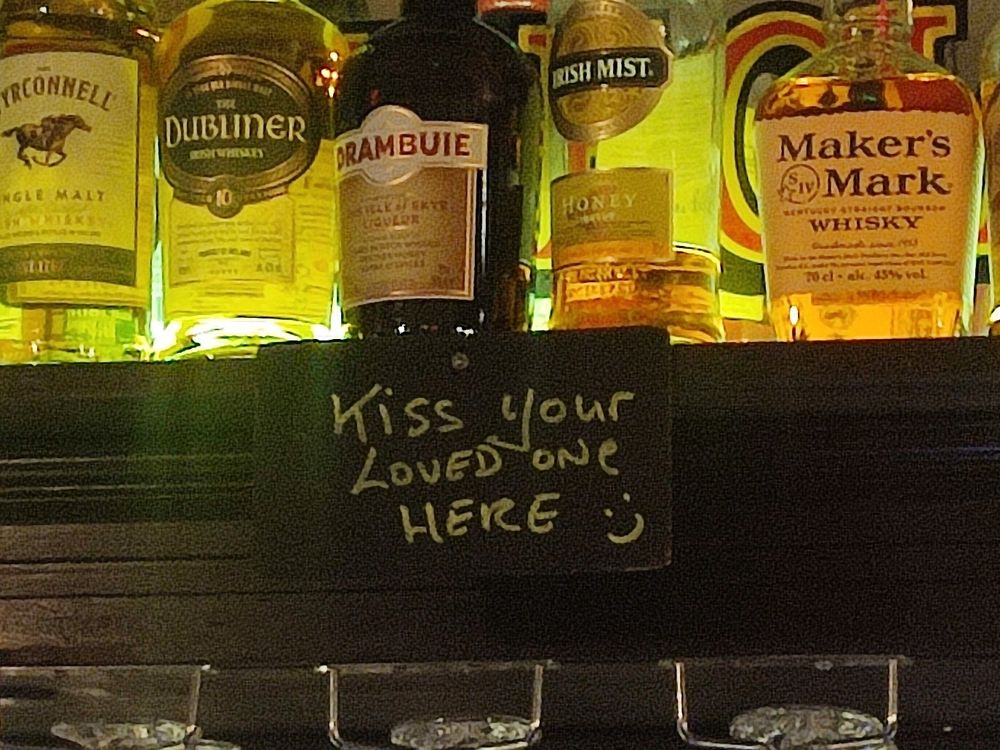 YRCONNELL
NGLE MALT
THE
DUBLINER
IRISH WHISKEY
10
DRAMBUIE
ISLE OF SKYE
LIQUEUR
IRISH MIST.
HONEY
Maker's
SIV Mark
KENTUCKY STRAIGHT BOURBON
WHISKY
Handmade since 1953
70 cl • alc. 45% vol.
Kiss your
LOVED ONE
HERE :)